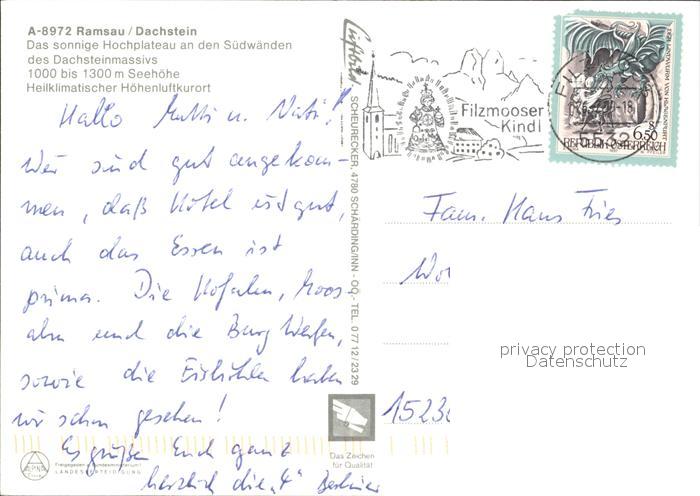 A-8972 Ramsau / Dachstein
Das sonnige Hochplateau an den Südwänden
des Dachsteinmassivs
1000 bis 1300 m Seehöhe
Heilklimatischer Höhenluftkurort
Hallo Mutti u. Vati!
Wir sind gut angekom-
men, daß Hotel ist gut,
auch das Essen ist
prima. Die Hofalm, Moos-
alm und die Burg Werfen,
sowie die Eishöhlen haben
wir schon gesehen!
Es grüßen Euch ganz
herzlich die „4" Berliner
Freigegeben v. Bundesministerium f.
LANDESVERTEIDIGUNG
Luftbild
SCHEURECKER, 4780 SCHÄRDING/INN - OÖ. - TEL. 0 77 12 / 23 29
Das Zeichen
für Qualität
Filzmooser
Kindl
5532
DER LINDWURM VON KLAGENFURT
S 6.50
REPUBLIK ÖSTERREICH
Fam. Hans Fries
1523
privacy protection
Datenschutz